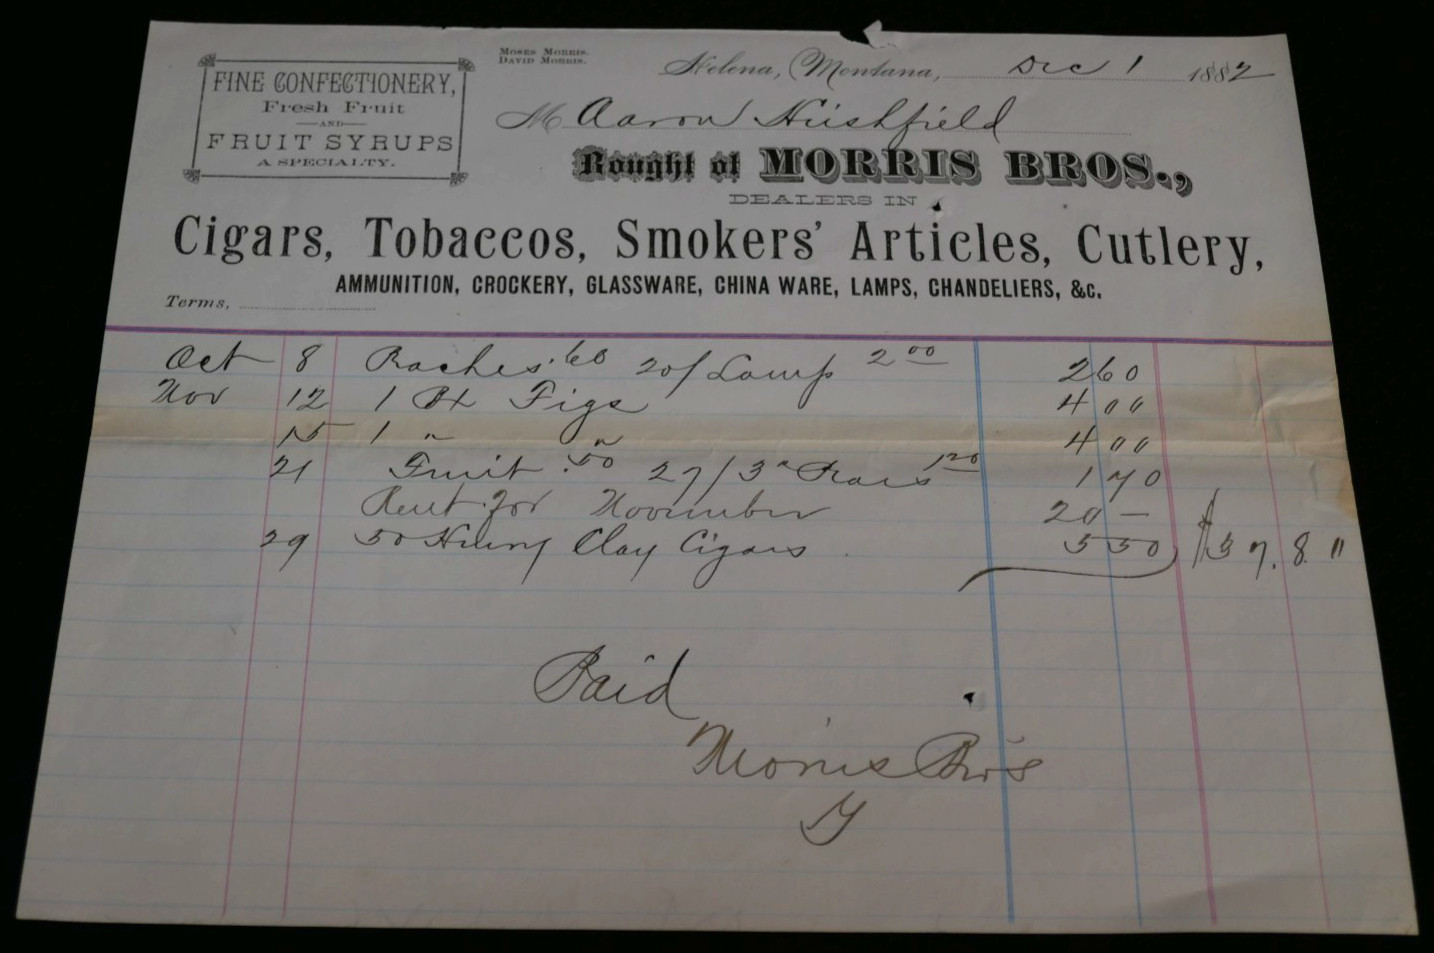 FINE CONFECTIONERY,
Fresh Fruit
—AND—
FRUIT SYRUPS
A SPECIALTY.
MOSES MORRIS.
DAVID MORRIS.
Helena, Montana, Dec 1 1882
M Aaron Hirshfield
Bought of MORRIS BROS.,
DEALERS IN
Cigars, Tobaccos, Smokers' Articles, Cutlery,
AMMUNITION, CROCKERY, GLASSWARE, CHINA WARE, LAMPS, CHANDELIERS, &c.
Terms,
Oct 8 .60 20/ Lamp 2 00 2 60
Nov 12 1 Bx Figs 4 "
15 1 " " 4 00
21 Fruit .50 27/ 3 " 1 20 1 70
Rent for November 20 —
29 50 Henry Clay Cigars 5 50 $37.8"
Paid
Morris Bros